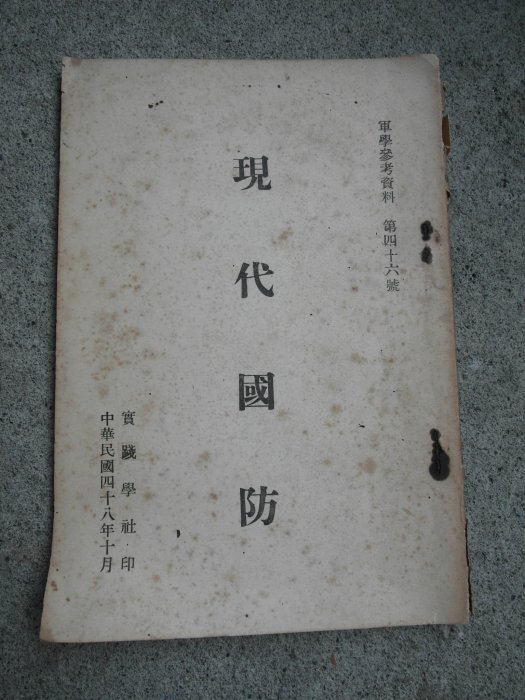 軍學參考資料 第四十六號
現代國防
實踐學社·印
中華民國四十八年十月